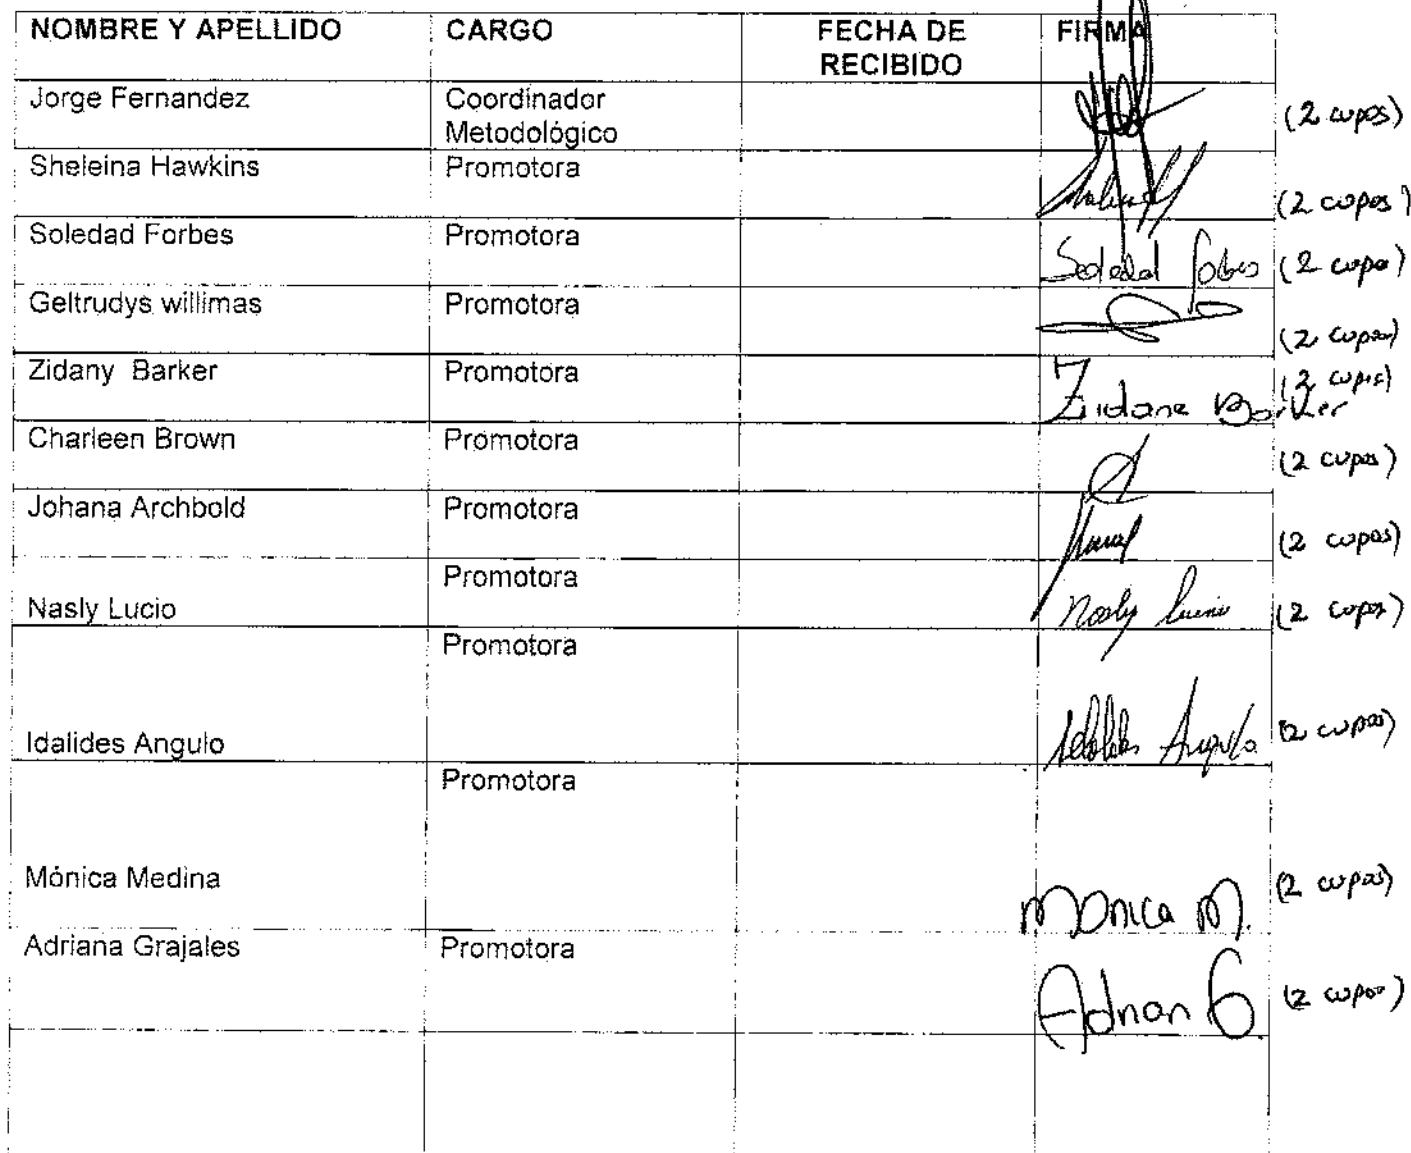 NOMBRE Y APELLIDO CARGO FECHA DE RECIBIDO FIRMA
Jorge Fernandez Coordinador Metodológico (2 cupos)
Sheleina Hawkins Promotora (2 cupos)
Soledad Forbes Promotora Soledad Forbes (2 cupos)
Geltrudys willimas Promotora (2 cupos)
Zidany Barker Promotora Zidane Barker (2 cupos)
Charleen Brown Promotora (2 cupos)
Johana Archbold Promotora (2 cupos)
Nasly Lucio Promotora Nasly Lucio (2 cupos)
Idalides Angulo Promotora Idalides Angulo (2 cupos)
Mónica Medina Promotora Monica M. (2 cupos)
Adriana Grajales Promotora Adrian G. (2 cupos)